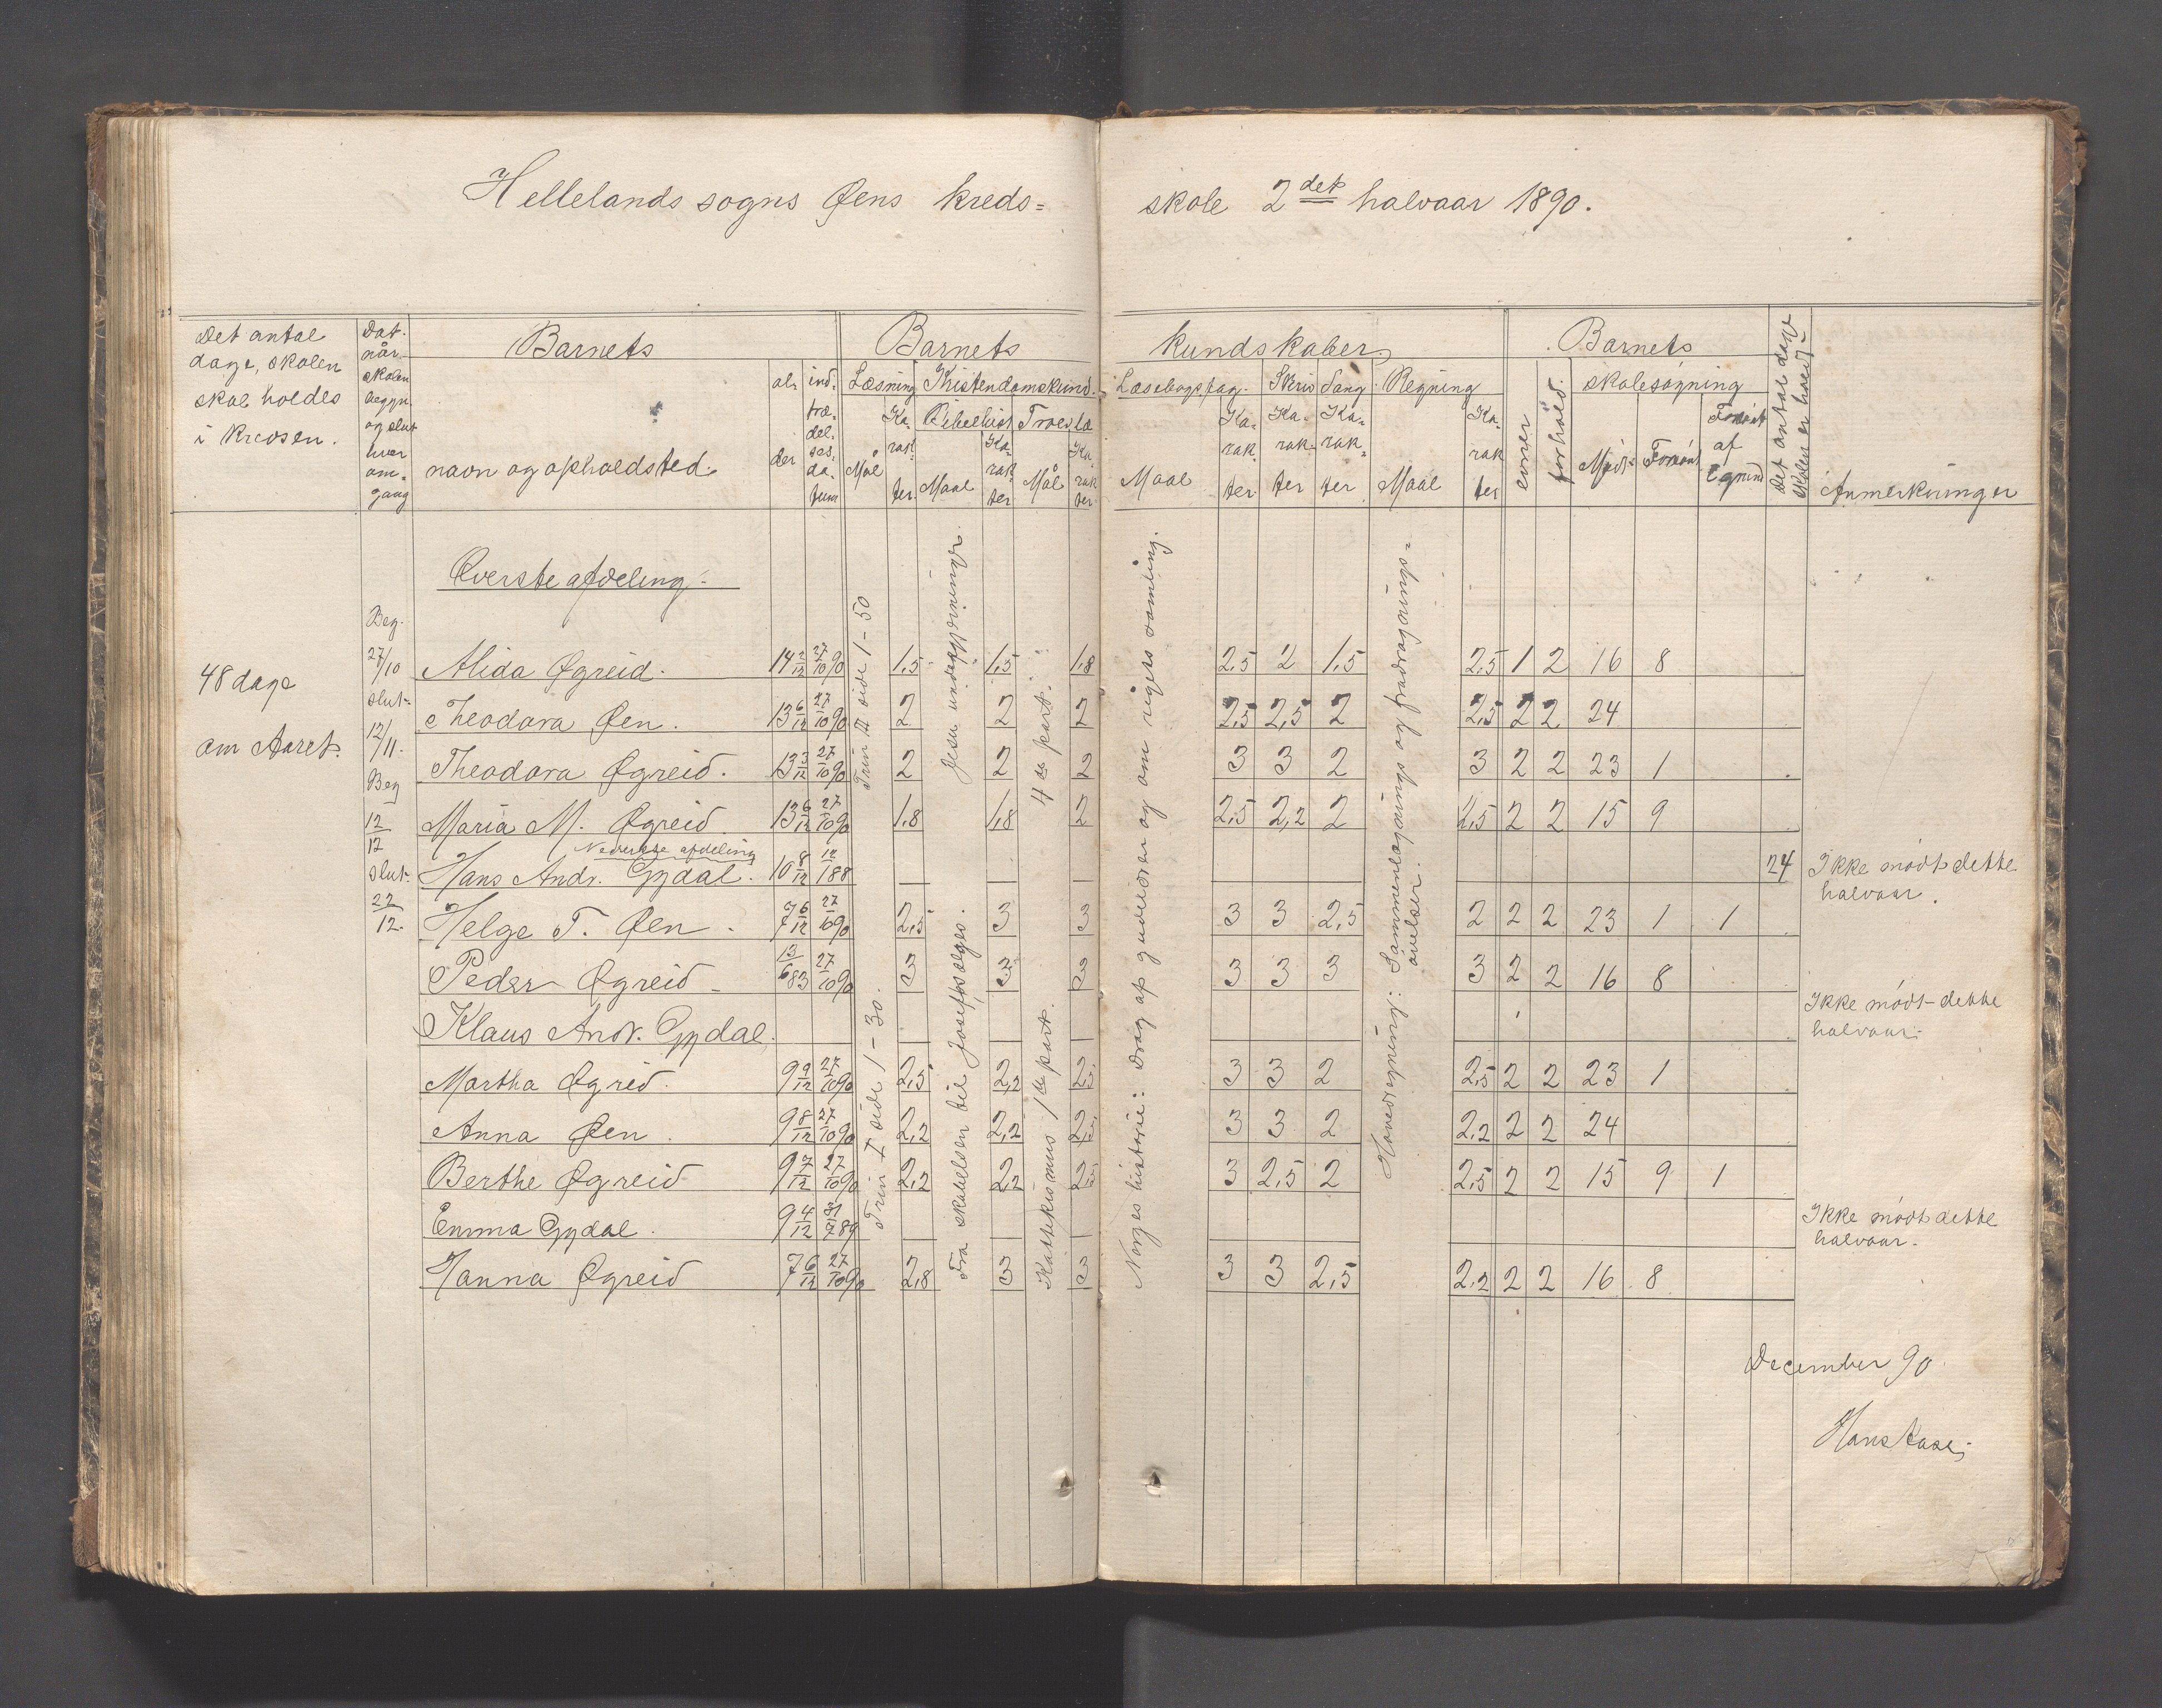 Hellelands sogns Øens kreds=
skole 2det halvaar 1890.
Det antal dage, skolen skal holdes i kredsen.
Dat. når skolen begyn. og slut hver om= gang
Barnets
navn og opholdsted.
al= der
ind. træ. del. ses. da. tum
Barnets
kundskaber.
Læsning
Mål
Ka. rak. ter
Kristendomskund.
Bibelhist.
Maal
Ka. rak. ter
Troeslæ
Mål
Ka. rak ter
Læsebogsfag.
Maal
Ka. rak. ter
Skriv
Ka. rak. ter
Sang
Ka. rak. ter
Regning
Maal
Ka. rak ter
evner
forhold.
Barnets
skolesøgning
Mødt
Forsømt
Forsømt af
Det antal dage skolen er holdt
Anmerkninger
48 dage
om Aaret.
Beg.
27/10
slut.
12/11.
Beg
12/12
slut.
22/12.
Øverste afdeling.
Trin II side 1-50
Jesu undergjerninger.
4de part.
Norges historie: Drag af gudelæren og om rigets samling.
Hovedregning: Sammenlægnings og fradragnings=
øvelser.
Alida Øgreid. 14 2/12 27/10 90 1,5 1,5 1,8 2,5 2 1,5 2,5 1 2 16 8
Theodora Øen. 13 6/12 27/10 90 2 2 2 2,5 2,5 2 2,5 2 2 24
Theodora Øgreid. 13 3/12 27/10 90 2 2 2 3 3 2 3 2 2 23 1
Maria M. Øgreid. 13 6/12 27/10 90 1,8 1,8 2 2,5 2,2 2 2,5 2 2 15 9
Nederste afdeling
Hans Andr. Gydal. 10 8/12 12/1 88 24 Ikke mødt dette
halvaar.
Helge T. Øen. 7 6/12 27/10 90 2,5 3 3 3 3 2,5 2 2 2 23 1 1
Peder Øgreid 13/6 83 27/10 90 3 3 3 3 3 3 3 2 2 16 8
Klaus Andr. Gydal. Ikke mødt dette
halvaar.
Martha Øgreid. 9 9/12 27/10 90 2,5 2,2 2,5 3 3 2 2,5 2 2 23 1
Anna Øen. 9 8/12 27/10 90 2,2 2,2 2,5 3 3 2 2,2 2 2 24
Berthe Øgreid 9 7/12 27/10 90 2,2 2,2 2,5 3 2,5 2 2,5 2 2 15 9 1
Emma Gydal. 9 4/12 31/7 89 Ikke mødt dette
halvaar.
Hanna Øgreid 7 6/12 27/10 90 2,8 3 3 3 3 2,5 2,2 2 2 16 8
Trin I side 1-30.
Fra skabelsen til Josef sælges.
Katekismus 1ste part.
December 90.
Hans